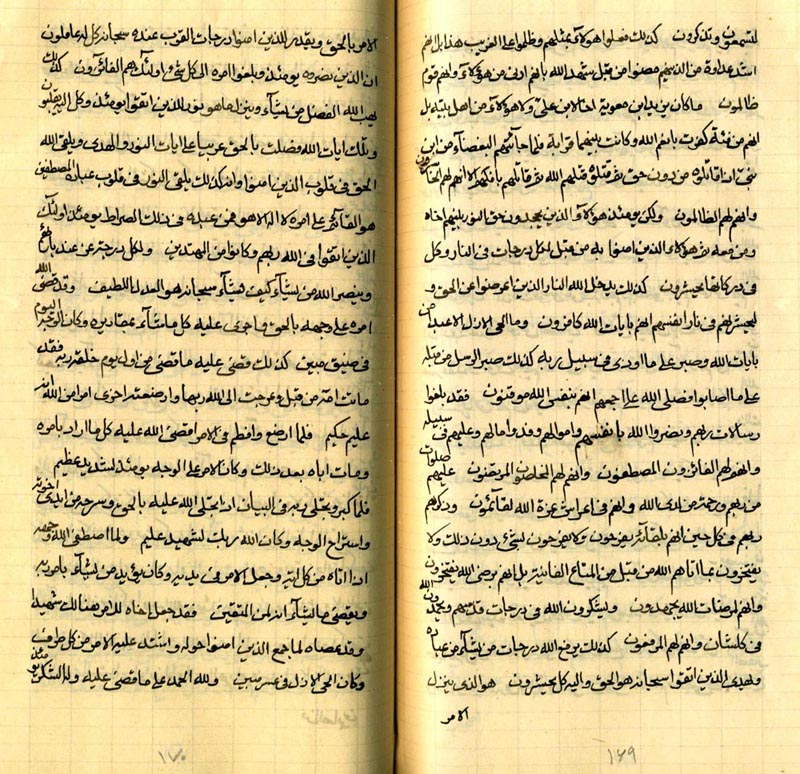 لتسمعون وتذكرون كذلك فعلوا هؤلاء بمثلهم وظلموا على الغريب هذا بل انهم
اشد عداوة من الذينهم مضوا من قبل شهد الله بانهم ادنى من هؤلاء وانهم قوم
ظالمون ما كان يزيد ابن معوية لعنا لابن علي ولا هؤلاء من اهل بيته بل
انهم من فئة كفرت بانعم الله وكانت بينهما قرابة فلما جائتهم البغضاء من ابن
وانهم لهم الظالمون ولكن يومئذ هؤلاء الذين يجحدون حق النور بينهم اخاه
ومن معه هؤلاء الذين امنوا به من قبل لكل درجات في النار وكل
في دركاتها يحشرون كذلك يدخل الله النار الذين اعرضوا عن الحق و
ليحشرهم في نار انفسهم انهم بايات الله كافرون وما الحي الازل الا عبد امن
بايات الله وصبر على ما اوذي في سبيل ربه كذلك صبر الرسل من قبله
على ما اصابوا فصلى الله على اجمعهم انهم بنفس الله موقنون فقد بلغوا
رسالات ربهم ونصروا الله بانفسهم واموالهم وفدوا مالهم وعليهم في سبيله
وانهم لهم الفائزون المصطفون وانهم لهم المخلصون الموقنون عليهم صلوات
من ربهم ورحمة من لدى الله وانهم في اعراش عزة الله لقائمون وذكرهم
ربهم في كل حين انهم بلقائه يفرحون ولا يفرحون بشيء دون ذلك ولا
يفتخرون بما اتاهم الله من قبل من المتاع الفانية بل انهم برضى الله يفتخرون
وانهم لمرضات الله يجهدون ويشكرون الله في درجات قدسهم ويحمدون الله
في كل شأن وانهم لهم المرفعون كذلك يرفع الله درجات من يشاء من عباده
ويهدي الذين اتقوا سبحانه هو الحق واليه كل يحشرون هو الذي ينزل
الامر
١٦٩
الامر بالحق ويقدر للذين امنوا درجات القرب عنده سبحانه كل له عاملون
ان الذين نصروه يومئذ وبلغوا امره الى كل شيء اولئك هم الفائزون كذلك
يهب الله الفضل من يشاء وينزل ما هو نور للذين اتقوا يومئذ وكل اليه يقلبون
وتلك ايات الله فصلت بالحق عربيا على ايات النور والهدى ويلقي الله
الحق في قلوب الذين امنوا وانه كذلك يلقي النور في قلوب عباده المصطفين
هو القائم على امره لا اله الا هو فمن عبده في ذلك الصراط يومئذ اولئك
الذين اتقوا في الله ربهم وكانوا من المهتدين ولكل درجة عن عند بارئهم
وينصر الله من يشاء كيف يشاء سبحانه هو العدل اللطيف وقد قضى الله
امره على وجهه بالحق فاجرى عليه كل ما شاء بمقاديره وكان الوحيد اليوم
في ضيق مبين كذلك قضى عليه ما قضى من اول يوم خلقه ربه فقد
ماتت امه من قبل وعرجت الى الله ربها وارضعته اخرى امرا من الله انه
عليم حكيم فلما ارضع وافطم في الامر اقضى الله عليه كل ما اراد بامره
ومات اباه بعد ذلك وكان الامر على الوجه يومئذ لشديد عظيم
فلما كبر وتجلى ربه في البيان اذ تجلى الله عليه بالحق وسرحه من ايدي اخويه
واستراح الوجه وكان الله ربك لشهيد عليم ولما اصطفى الله وجهه
اذ اتاه من كل اية وجعل الامر في يديه وكان يؤيد من يشاء بامر ربه
ويقضي ما يشاء انه لمن المتقين فقد جعل اخاه للامر هنالك شهيدا
وقد عصاه لما جمع الذين امنوا حوله واشتد عليه الامر من كل طرف
وكان الحي الازل في عسر مبين ولله الحمد على ما قضى عليه وله الشكر يومئذ
١٧٠